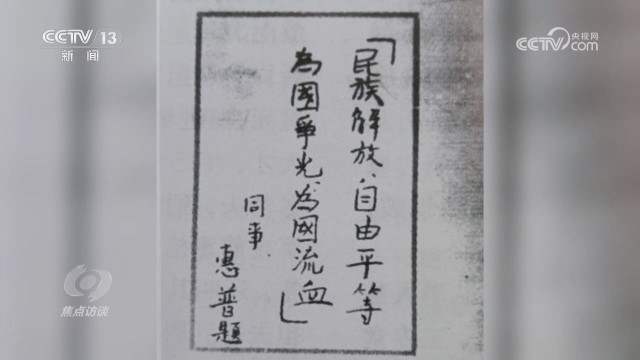 CCTV 13
新闻
央视网
CCTV.com
「民族解放、自由平等
為國爭光、為國流血」
同事.
惠普題
焦点访谈